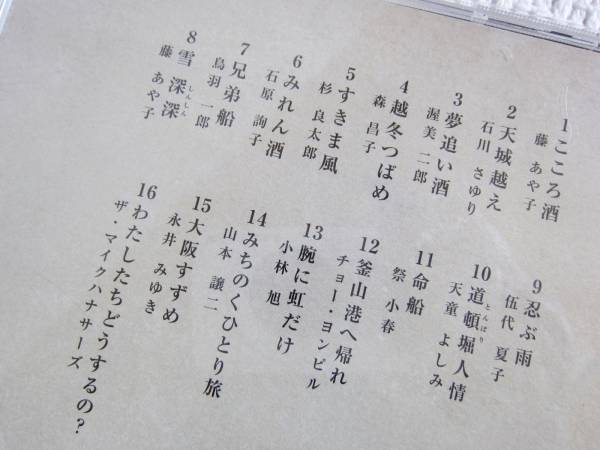 1 こころ酒
藤 あや子
2 天城越え
石川 さゆり
3 夢追い酒
渥美 二郎
4 越冬つばめ
森 昌子
5 すきま風
杉 良太郎
6 みれん酒
石原 詢子
7 兄弟船
鳥羽 一郎
8 雪 深深
しんしん
藤 あや子
9 忍ぶ雨
伍代 夏子
10 道頓堀人情
とんぼり
天童 よしみ
11 命船
祭 小春
12 釜山港へ帰れ
チョー・ヨンピル
13 腕に虹だけ
小林 旭
14 みちのくひとり旅
山本 譲二
15 大阪すずめ
永井 みゆき
16 わたしたちどうするの?
ザ・マイクハナサーズ